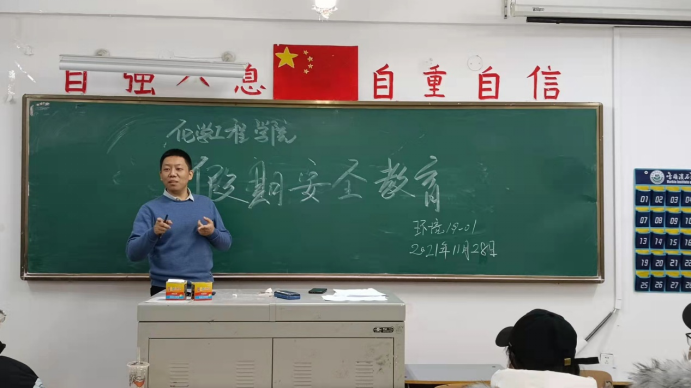 自强不息 自重自信
化学工程学院
假期安全教育
环境19-01
2021年11月28日
01 02 03 04
07 08 09 10
13 14 15 16
19 20 21 22
25 26 27 28